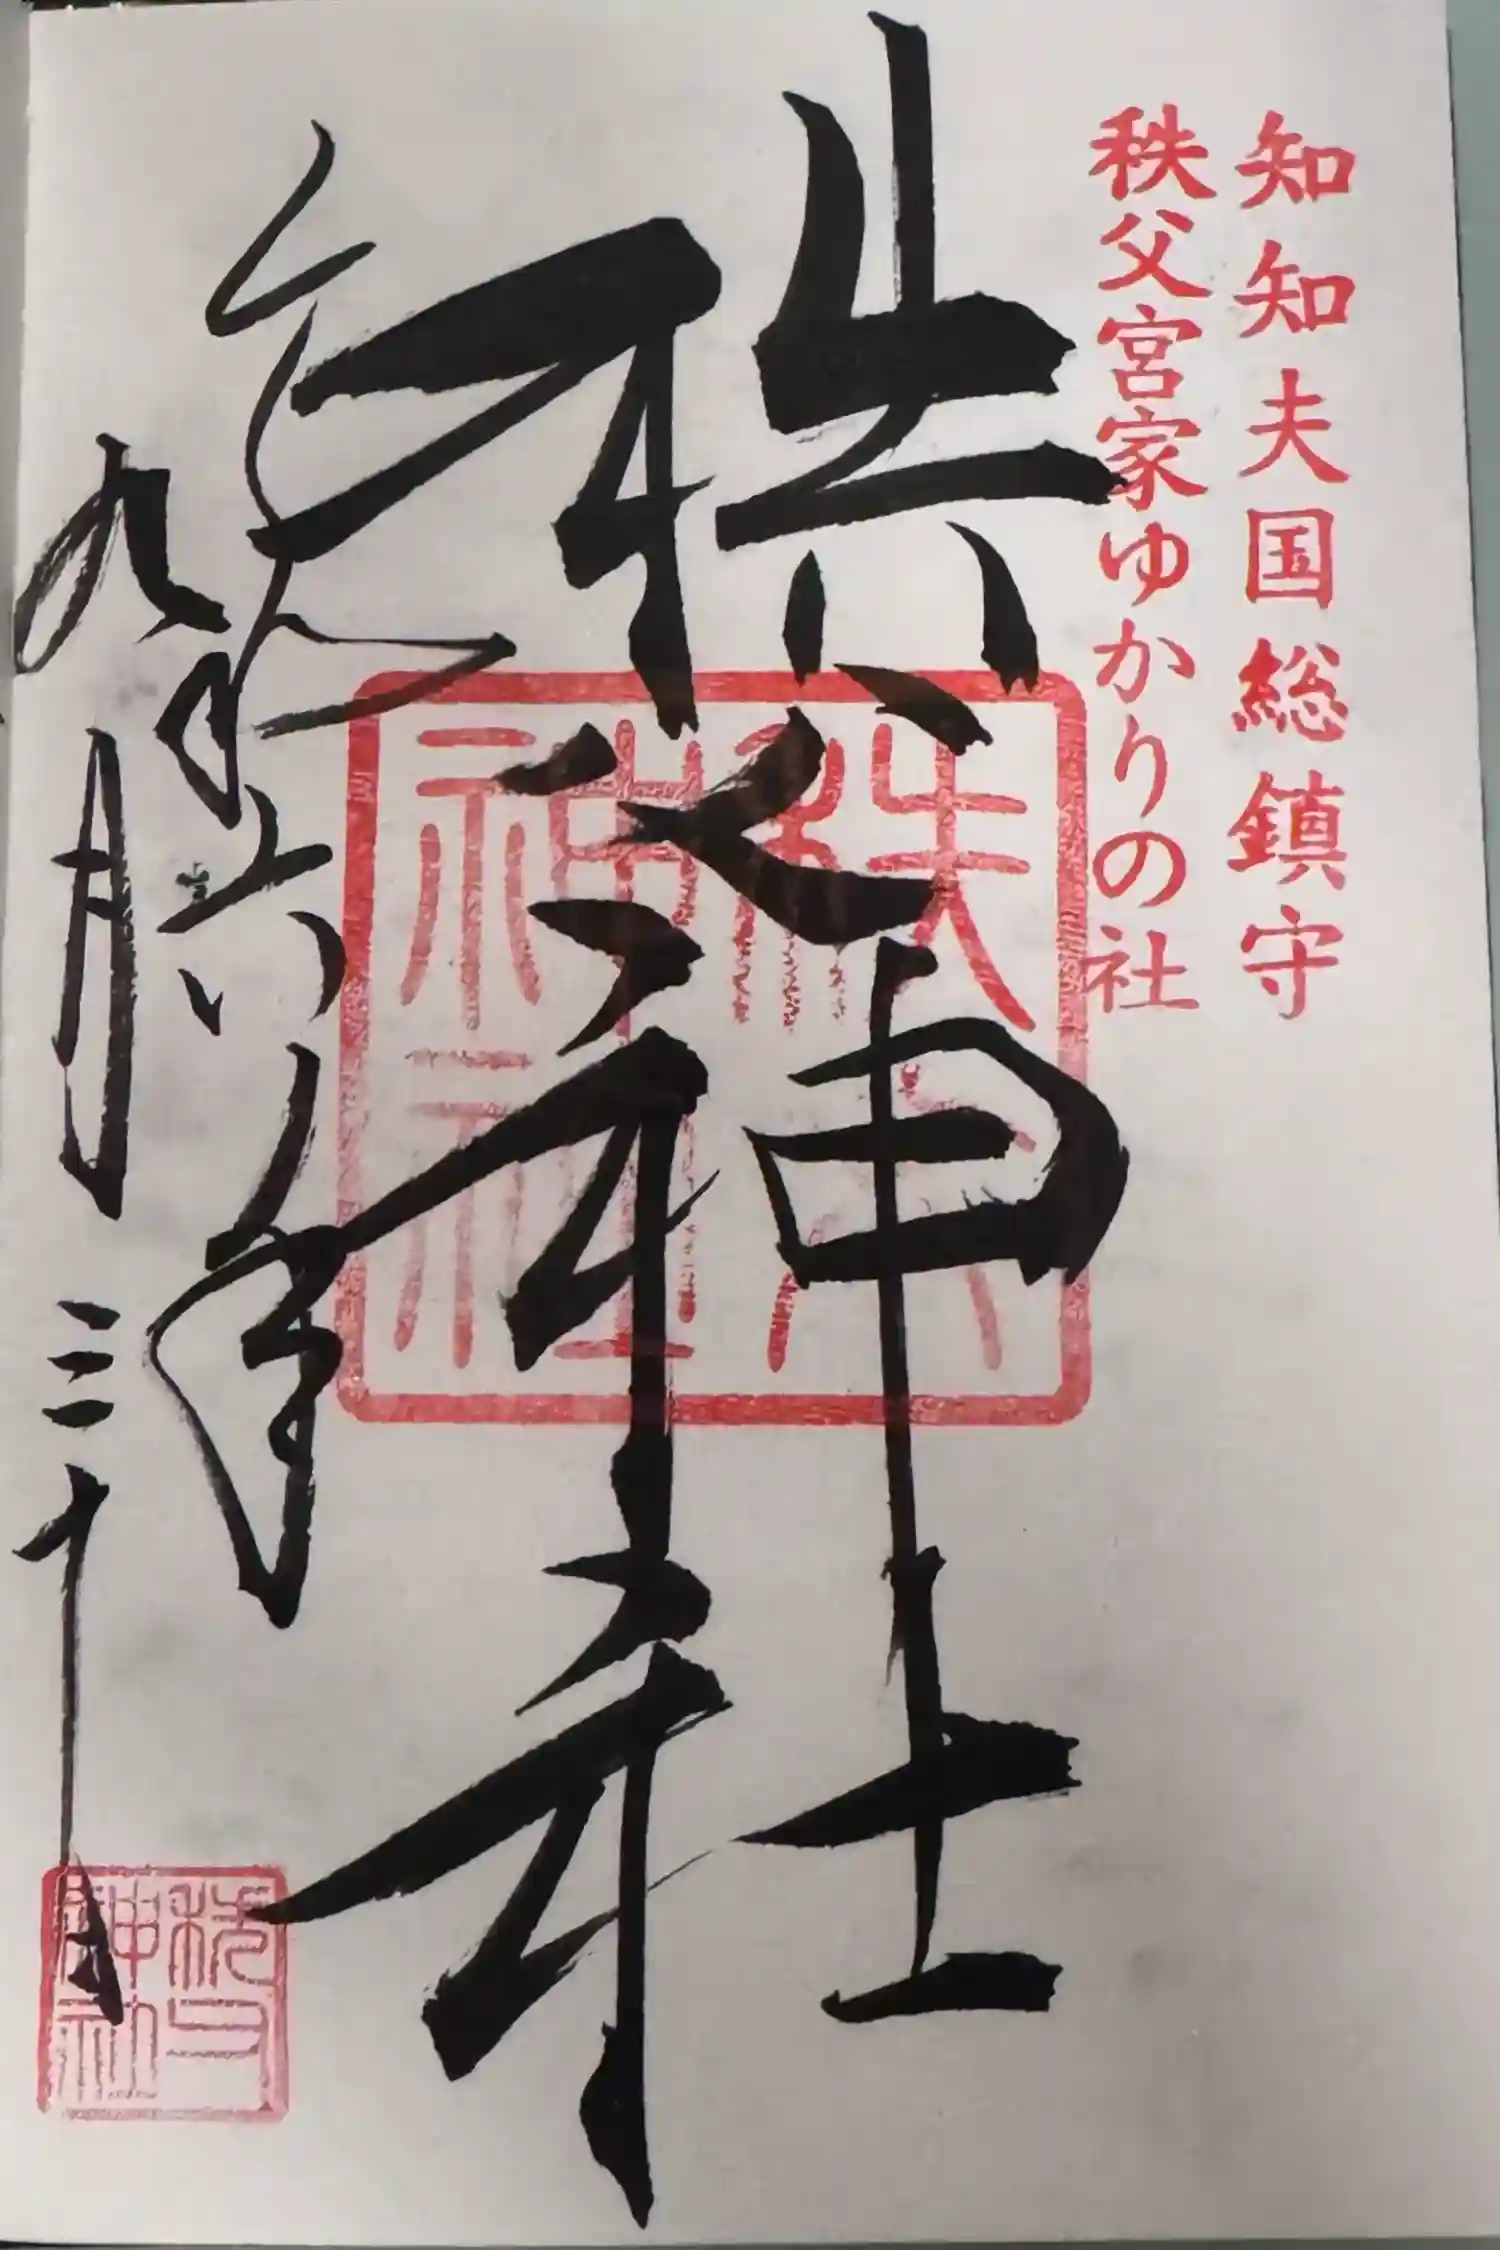 知知夫国総鎮守
秩父宮家ゆかりの社
秩父神社
秩父
神社
令和六年
九月三十日
秩父
神社